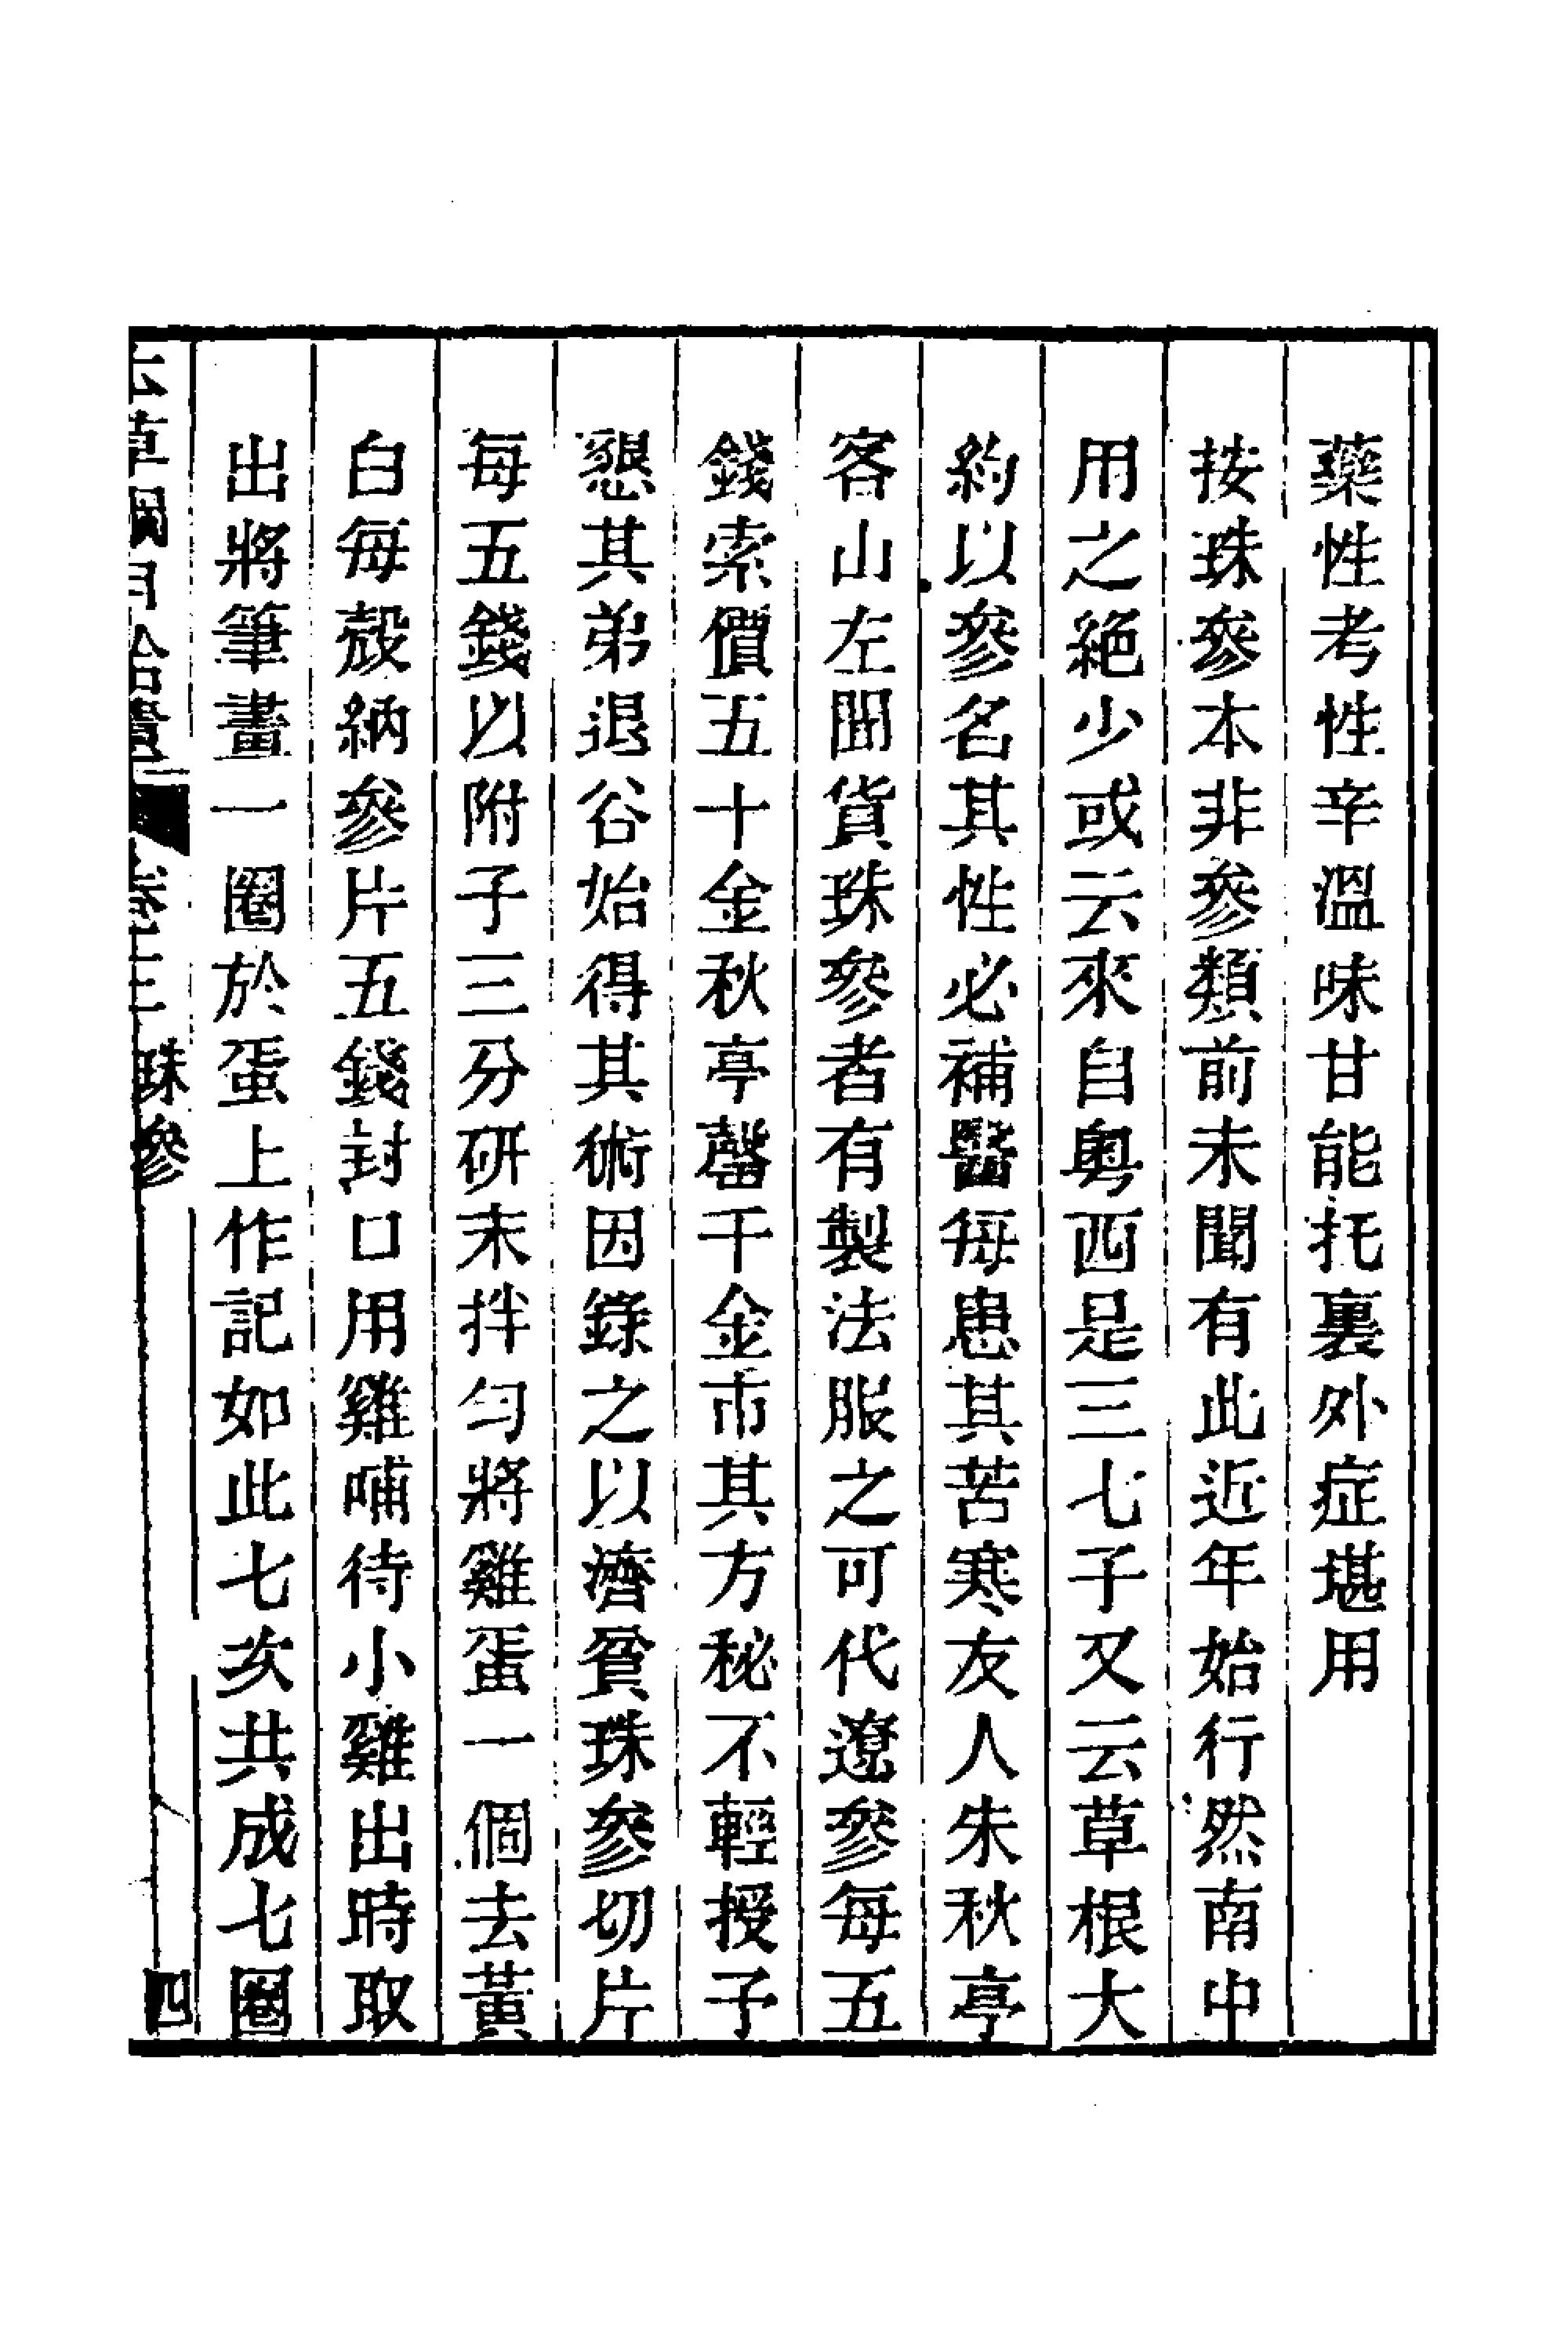 藥性考性辛溫味甘能托裏外症堪用
按珠參本非參類前未聞有此近年始行然南中
用之絕少或云來自粵西是三七子又云草根大
約以參名其性必補醫每患其苦寒友人朱秋亭
客山左聞貨珠參者有製法服之可代遼參每五
錢索價五十金秋亭罄千金市其方秘不輕授予
懇其弟退谷始得其術因錄之以濟貧珠參切片
每五錢以附子三分研末拌勻將雞蛋一個去黃
白每殼納參片五錢封口用雞哺待小雞出時取
出將筆畫一圈於蛋上作記如此七次共成七圈
本草綱目拾遺 卷三 珠參 四